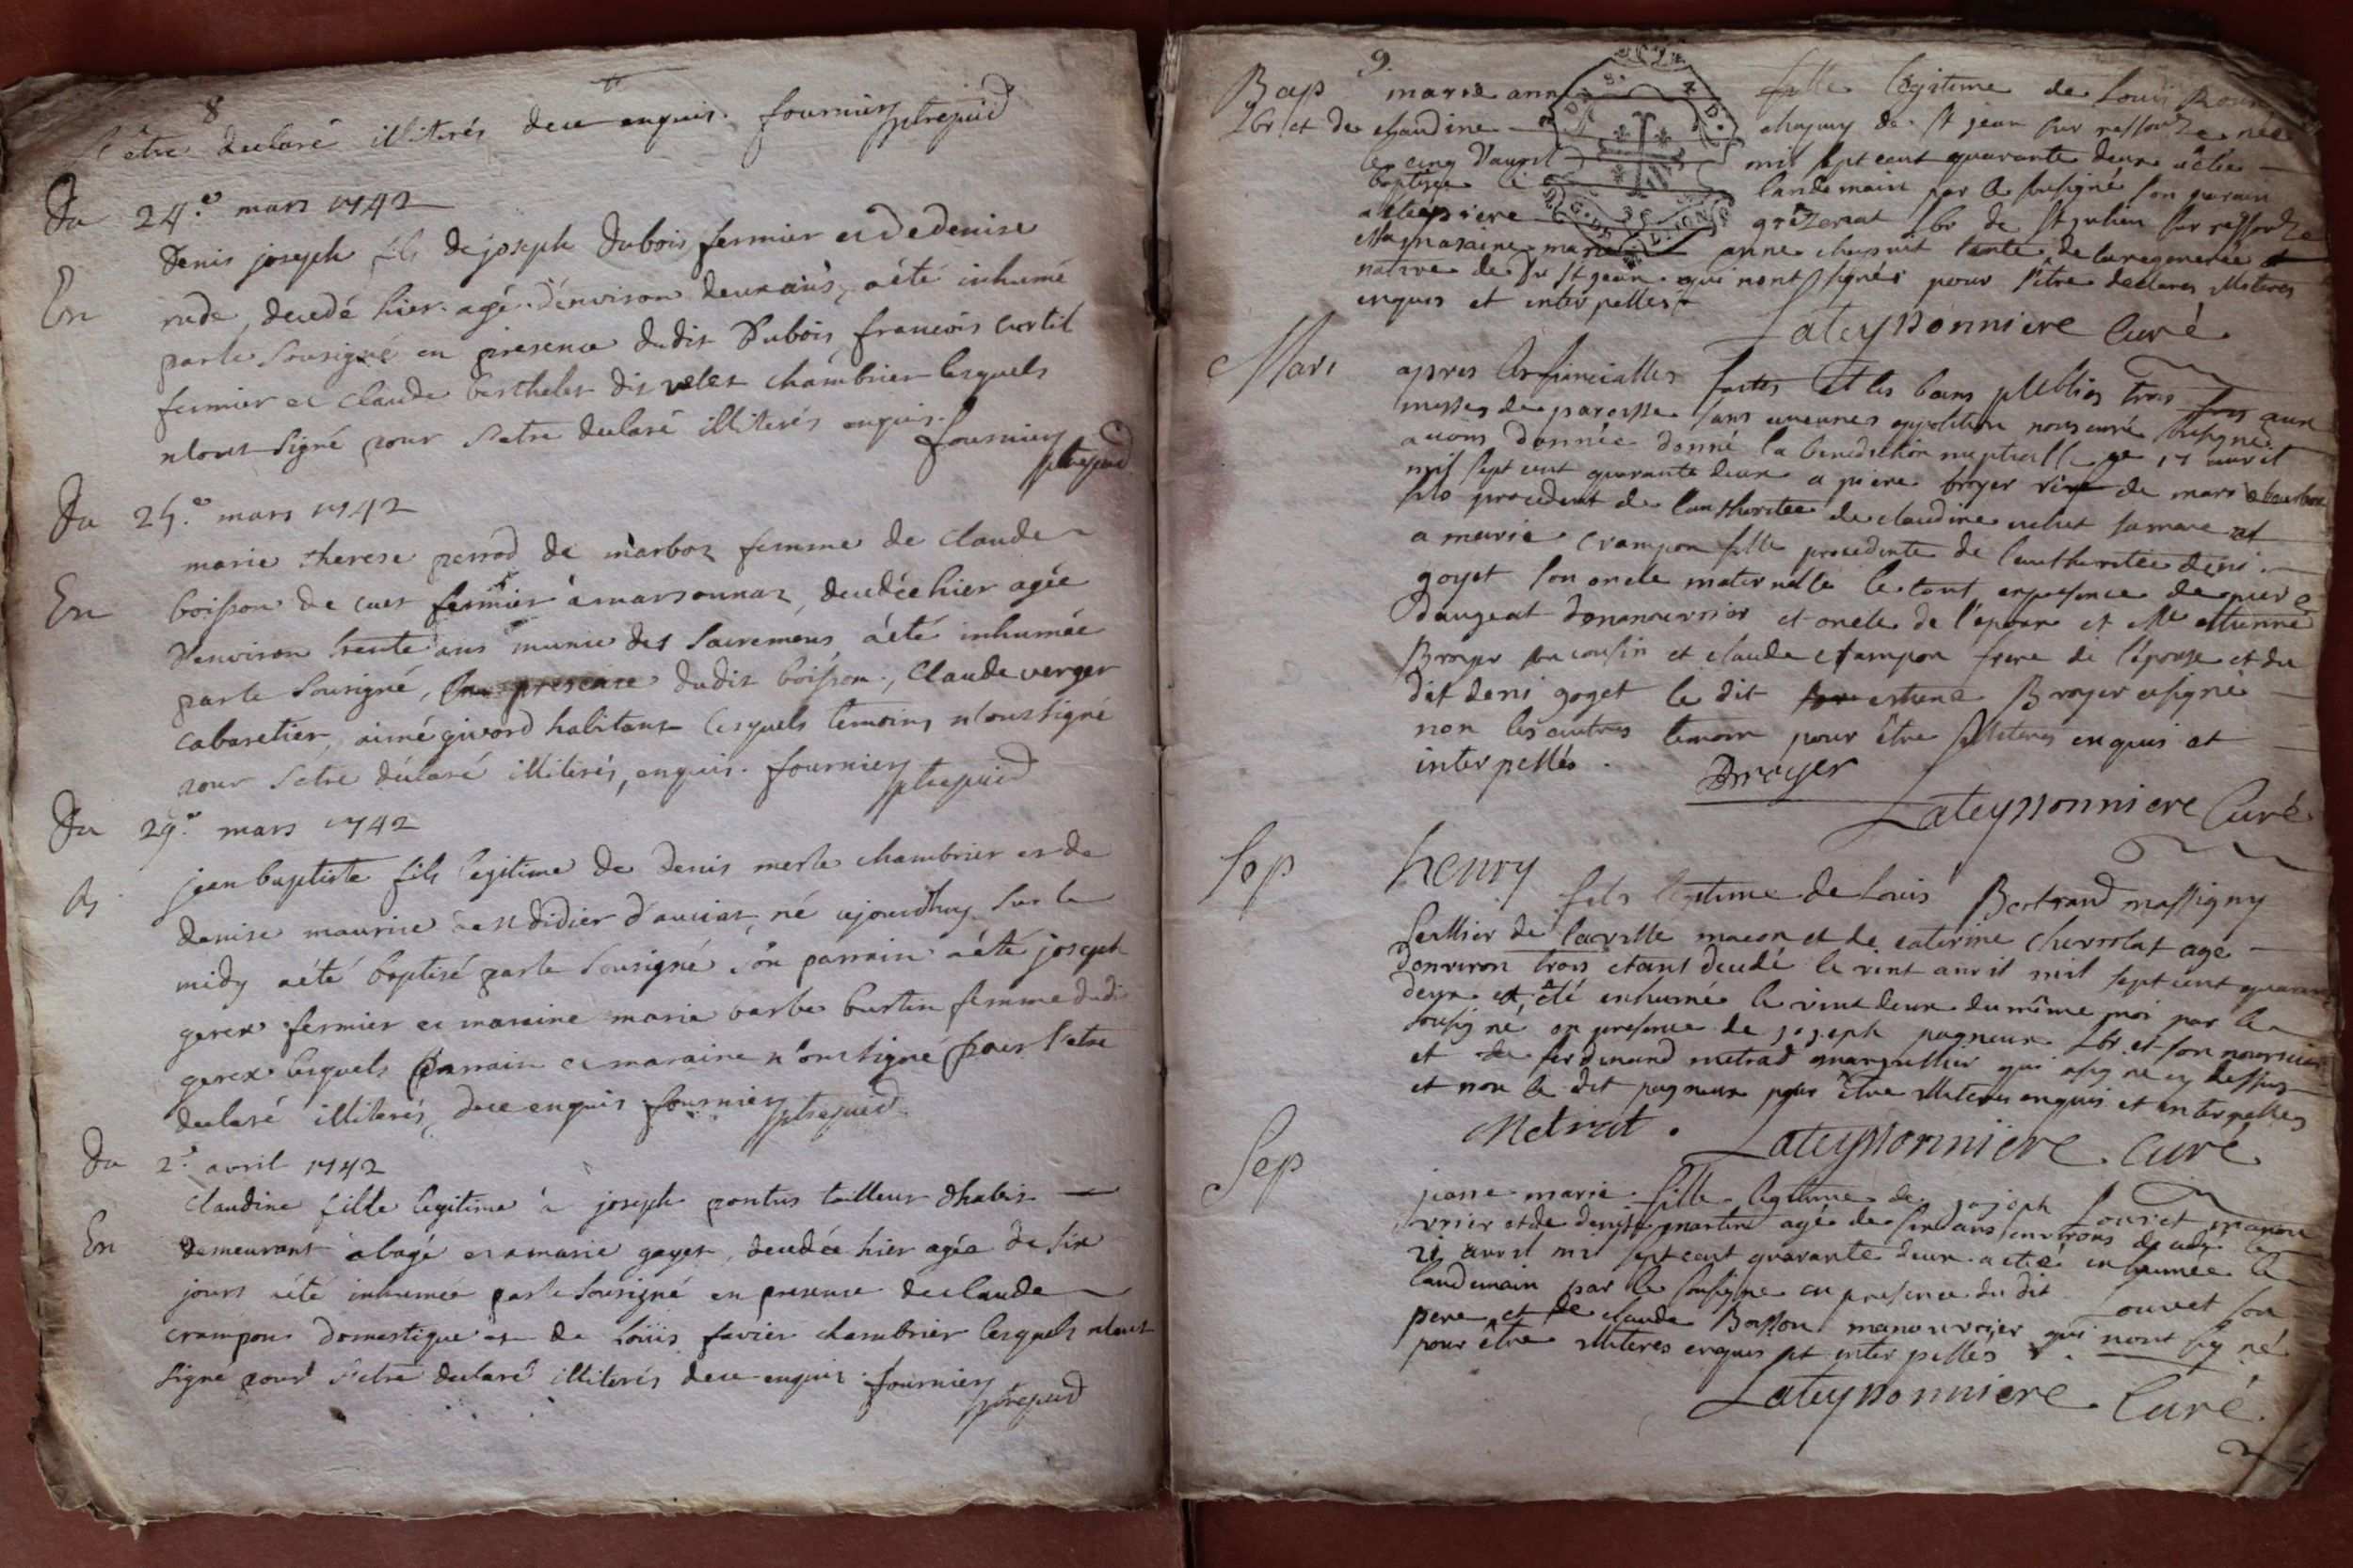 8
s'être declaré illiterés dece enquis. fournier ptrepied
Du 24.e mars 1742
Denis joseph fils de joseph Dubois fermier et de denise
En rude, decedé hier agé d'environ deux ans, a été inhumé
par le Sousigné en presence dudit Dubois, francois curtil
fermier et Claude berthelet dit valet chambrier lesquels
n'ont signé pour s'etre declaré illiterés enquis. fournier
Du 25.e mars 1742
marie therese perrod de marboz femme de claude
En boisson de cuet fermier a marsonnaz, decedée hier agée
d'environ trente ans munie des sacremens, a été inhumée
par le Sousigné, en presence dudit boisson, Claude verger
cabaretier, aimé givord habitans lesquels temoins n'ont signé
pour s'etre declaré illiterés, enquis. fournier
Du 29.e mars 1742
jean baptiste fils legitime de Denis merle chambrier et de
B. denise maurice de st didier d'aussiat, né ajourdhuy sur le
midy a été baptisé par le Sousigné, son parrain a été joseph
gerex fermier et maraine marie barbe burtin femme dudit
gerex lesquels parrain et maraine n'ont signé pour s'etre
declaré illiterés, dece enquis fournier
Du 2.e avril 1742
claudine fille legitime a joseph pontus tailleur d'habits
En demeurant a bagé et a marie gayet, decedée hier agée de six
jours a été inhumée par le Sousigné en presence de claude
crampon domestique et de Loüis favier chambrier lesquels n'ont
signé pour s'etre declaré illiterés dece enquis. fournier
9.
Bap marie ann fille legitime de Louis
Lbr et de claudine chapuy de St jean sur ressouze née
le cinq d'avril mil sept cent quarante deux a étée
baptisée le landemain par le susigné son parain
Lbr de St julien sur ressouze
marie anne chapuit tante de la regenerée
native de Du St jean qui nont signés pour s'être declares illiteres
enquis et interpelles
Lateyssonniere Curé
Mari apres les fiancialles faites et les bans plublies trois fois aux
messes de paroisse sans aucunes oppolition nous curé susigné
avons donnée donné la benediction nuptialle ce 17 avril
mil sept cent quarante deux a piere broyer
fils procedent de lauthoritée de claudine sa mere et
a marie crampon fille procedente de lauthoritée deni
goyet son oncle maternelle le tout enpresence de piere
daugeat et oncle de l'epoux et Me ettienne
Broyer son cousin et claude crampon frere de l'épouse et du
dit deni goyet le dit estiene Broyer a signé
non les autres temoin pour être illiteres enquis et
interpellés.
Broyer
Lateyssonniere Curé
Sep henry fils legitime de Louis Bertrand massigny
sellier de la ville macon et de caterine agé
d'environ trois etant decedé le vint avril mil sept cent quarante
deux et été enhumé le vint deux du même moi par le
sousigné en presence de joseph pagneux Lbr et son nourricier
et de ferdinand metrad marguillier qui a signé cy dessus
et non le dit pagneux pour être illiteres enquis et interpelles
Metrat. Lateyssonniere Curé
Sep jeane marie fille legitime de joseph Louvet manou
vrier et de denise martin agé de ans environs decedé le
21 avril mil sept cent quarante deux a étée inhumée le
landemain par le sousigné en presence du dit Louvet son
pere et de claude Boisson manouvrier qui nont signé
pour être illiteres enquis et interpellés
Lateyssonniere Curé